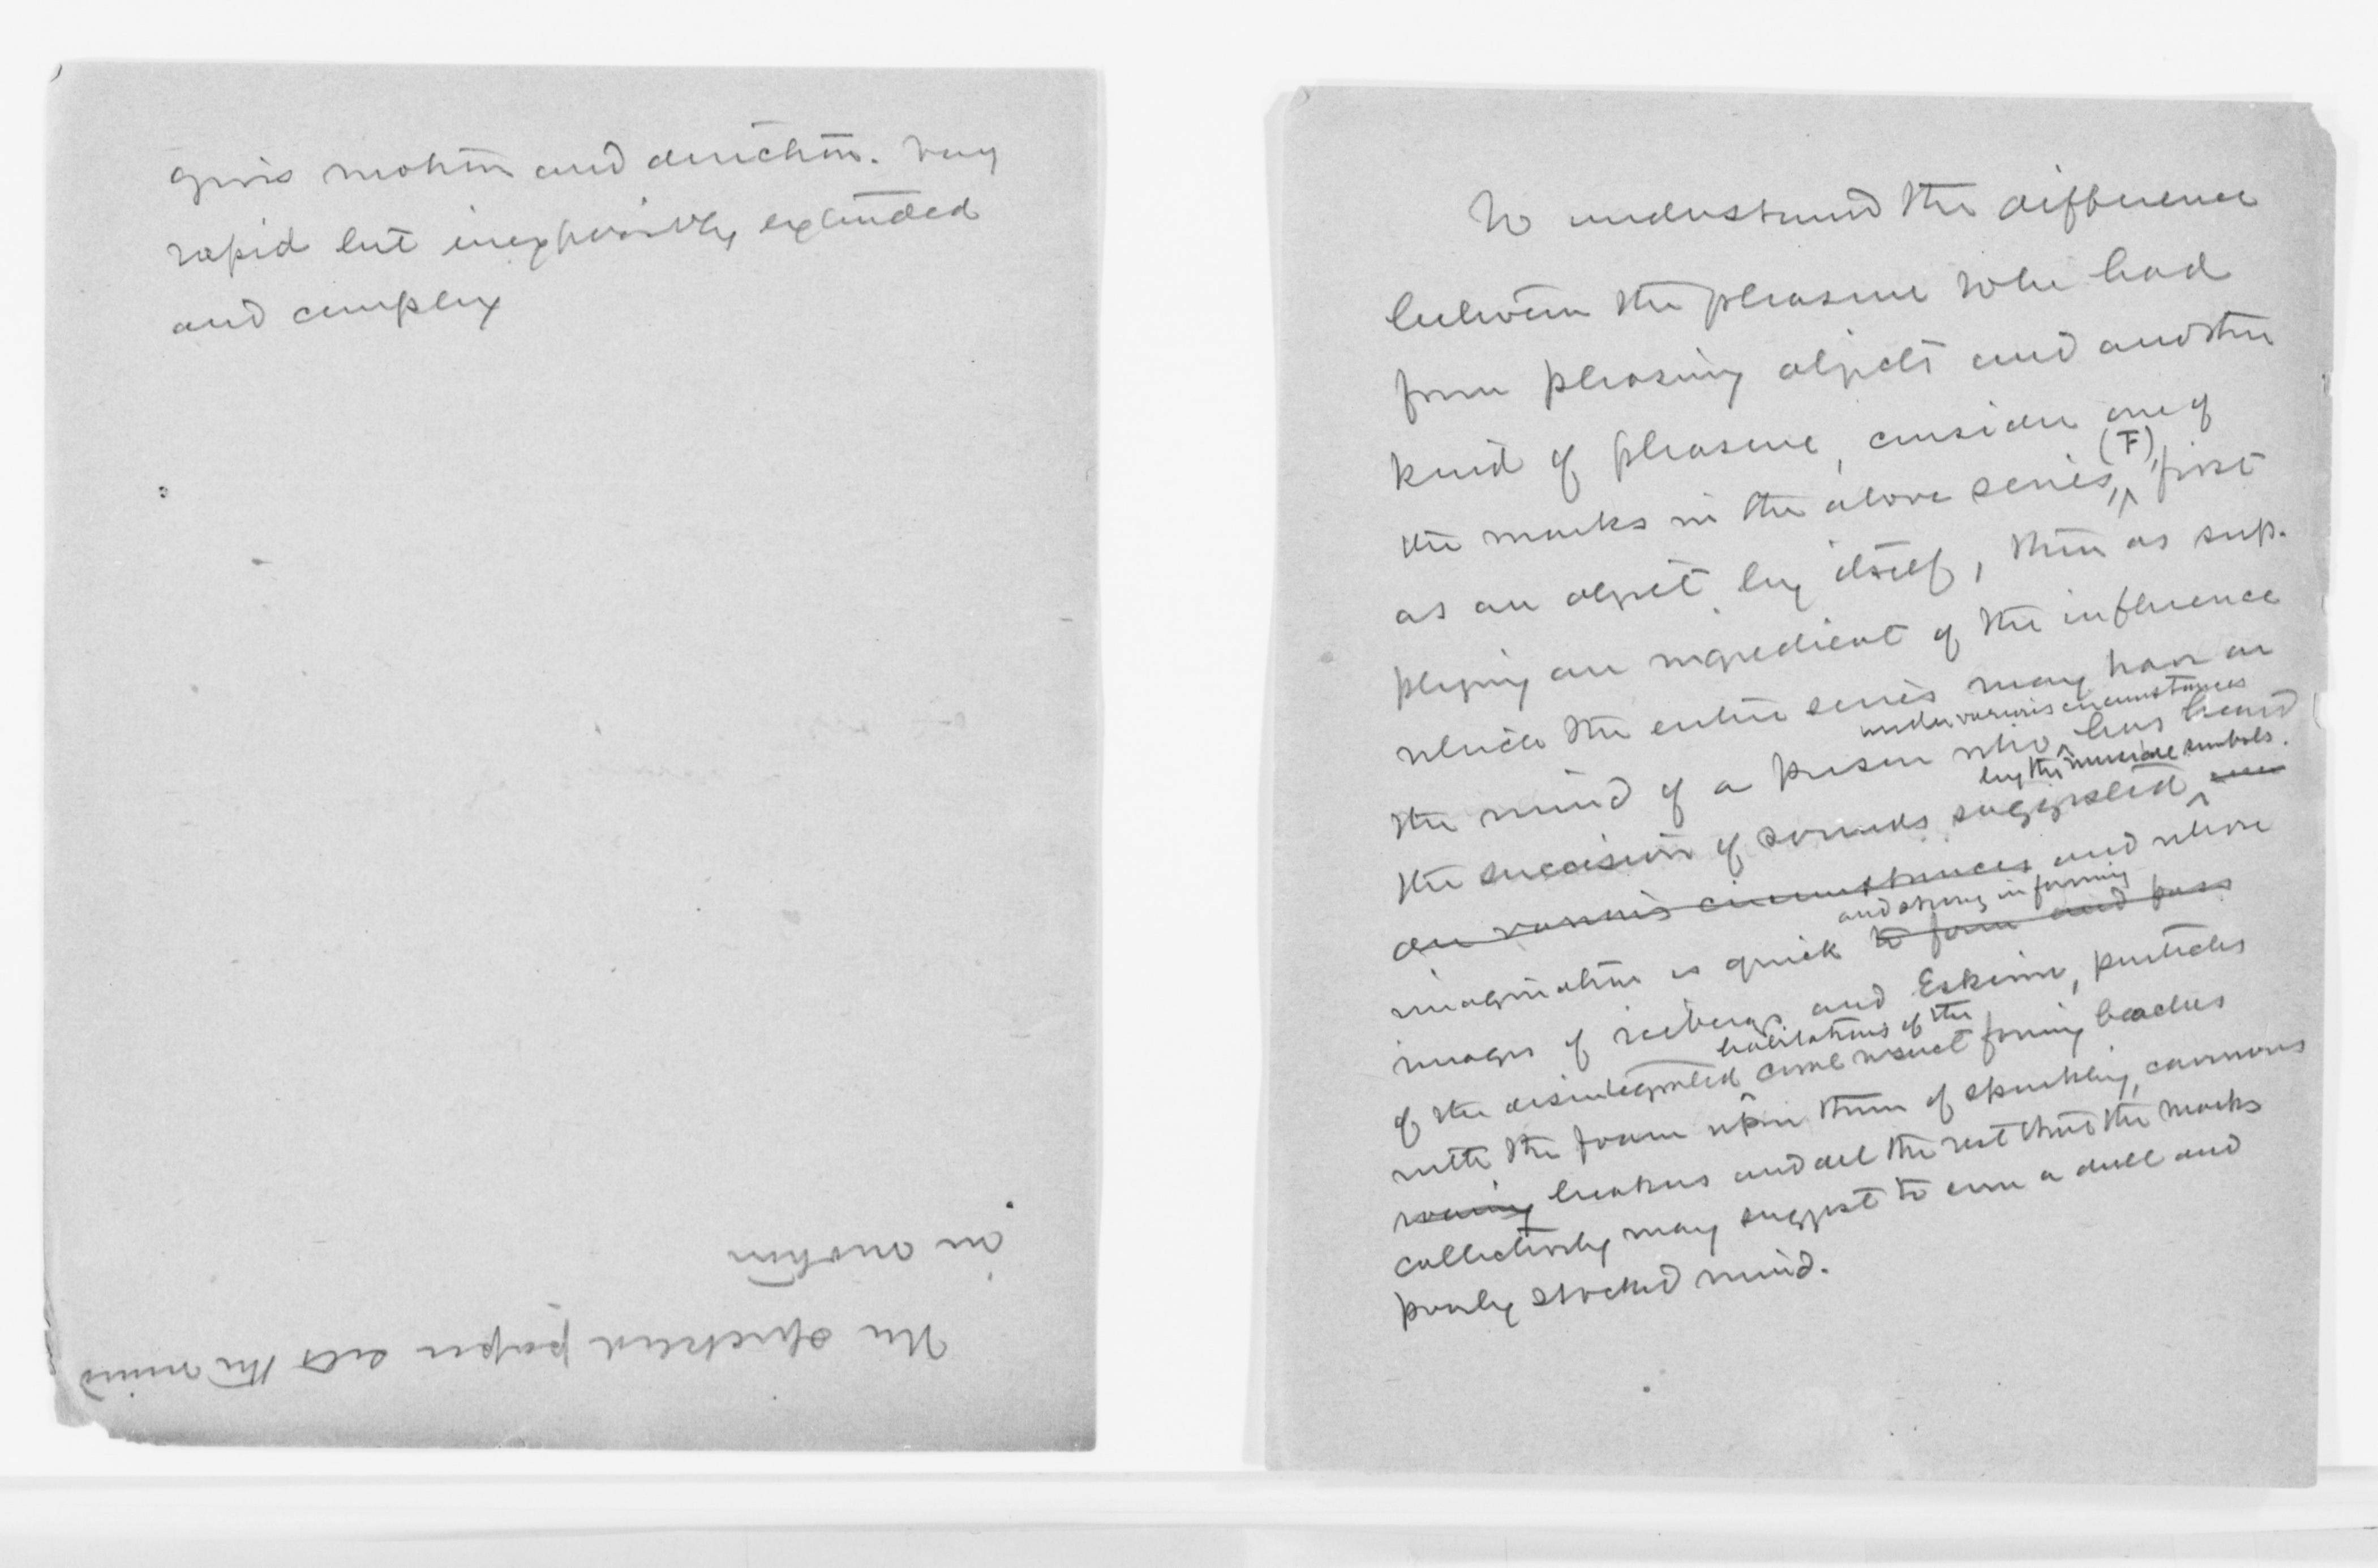 gives motion and direction. Very
rapid but inexpressibly extended
and complex
The specked paper sets the mind
in another
To understand the difference
between the pleasure to be had
from pleasing objects and another
kind of pleasure, consider one of
the marks in the above series, (F), first
as an object by itself, then as sup-
plying an ingredient of the influence
which the entire series may have on
the mind of a person who under various circumstances has heard
the succession of sounds suggested by the musical symbols.
various circumstances and whose
imagination is quick to form and pass and strong in forming
images of icebergs and Eskimo, particles
of the disintegrated habitations of the coral insect forming beaches
with the foam upon them of sparkling, cavernous
roaring breakers and all the rest that the marks
collectively may suggest to even a dull and
poorly stocked mind.